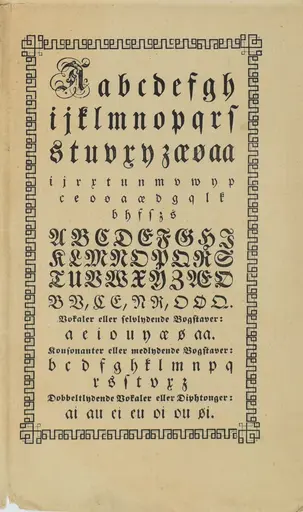 A a b c d e f g h
i j k l m n o p q r ſ
s t u v x y z æ ø aa
i j r x t u n m v w y p
c e o ø a æ d g q l k
b h f ſ z s
A B C D E F G H I
K L M N O P Q R S
T U V W X Y Z Æ Ø
B V, C E, N R, O D Q.
Vokaler eller ſelvlydende Bogſtaver:
a e i o u y æ ø aa.
Konſonanter eller medlydende Bogſtaver:
b c d f g h k l m n p q
r s ſ t v x z
Dobbeltlydende Vokaler eller Diphtonger:
ai au ei eu oi ou øi.